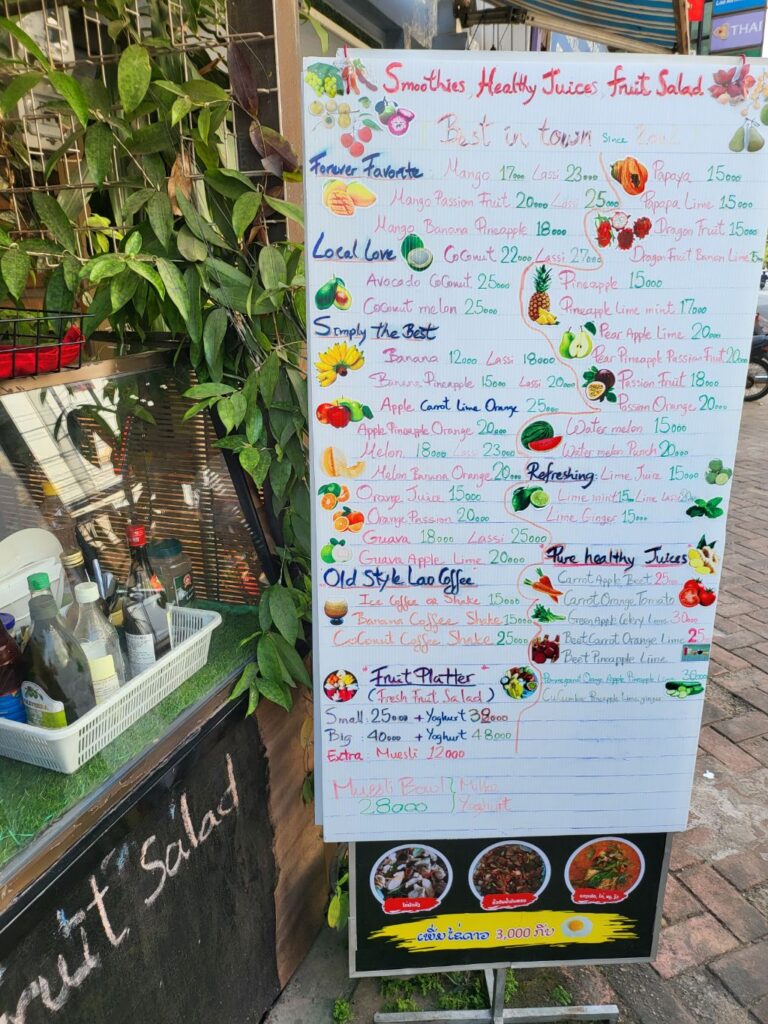 THAI
Smoothies, Healthy Juices, Fruit Salad
Best in town since
Forever Favorite Mango 17000 Lassi 23000
Mango Passion Fruit 20000 Lassi 25000
Mango Banana Pineapple 18000
Local Love Coconut 22000 Lassi 27000
Avocado Coconut 25000
Coconut melon 25000
Simply the Best
Banana 12000 Lassi 18000
Banana Pineapple 15000 Lassi 20000
Apple Carrot Lime Orange 25000
Apple Pineapple Orange 20000
Melon 18000 Lassi 23000
Melon Banana Orange 20000
Orange Juice 15000
Orange Passion 20000
Guava 18000 Lassi 25000
Guava Apple Lime 20000
Old Style Lao Coffee
Ice Coffee or Shake 15000
Banana Coffee Shake 15000
Coconut Coffee Shake 25000
"Fruit Platter"
(Fresh Fruit Salad)
Small: 25000 + Yoghurt 32000
Big: 40000 + Yoghurt 48000
Extra: Muesli 12000
Muesli Bowl } Milk
28000 Yoghurt
Papaya 15000
Papapa Lime 15000
Dragon Fruit 15000
Dragon Fruit Banan Lime
Pineapple 15000
Pineapple Lime mint 17000
Pear Apple Lime 20000
Pear Pineapple Passion Fruit 20
Passion Fruit 18000
Passion Orange 20000
Water melon 15000
Water melon Punch 20000
Refreshing: Lime Juice 15000
Lime mint 15000 Lime Lassi
Lime Ginger 15000
Pure healthy Juices
Carrot Apple Beet 25000
Carrot Orange Tomato
Green Apple Celery Lime 30000
Beet Carrot Orange Lime 25
Beet Pineapple Lime
Orange Apple Pineapple Lime
Cucumber Pineapple Lime ginger
ເພີ່ມໄຂ່ດາວ 3,000 ກີບ
Fruit Salad